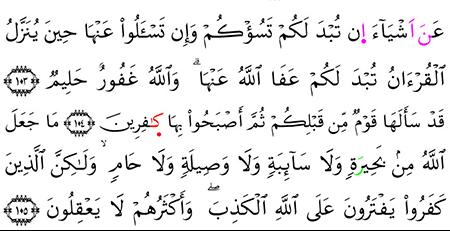 عَنَ اَشْيَآءَ ان تُبْدَ لَكُمْ تَسُؤْكُمْ وَإِن تَسْـَٔلُواْ عَنْهَا حِينَ يُنَزَّلُ
اُ۬لْقُرْءَانُ تُبْدَ لَكُمْ عَفَا اَ۬للَّهُ عَنْهَاۖ وَاللَّهُ غَفُورٌ حَلِيمٌۖ ١٠٣
قَدْ سَأَلَهَا قَوْمٌ مِّن قَبْلِكُمْ ثُمَّ أَصْبَحُواْ بِهَا كٰ۪فِرِينَۖ ١٠٤ مَا جَعَلَ
اَ۬للَّهُ مِنۢ بَحِيرَةٍ وَلَا سَآئِبَةٍ وَلَا وَصِيلَةٍ وَلَا حَامٍۙ وَلَٰكِنَّ اَ۬لَّذِينَ
كَفَرُواْ يَفْتَرُونَ عَلَى اَ۬للَّهِ اِ۬لْكَذِبَۖ وَأَكْثَرُهُمْ لَا يَعْقِلُونَۖ ١٠٥